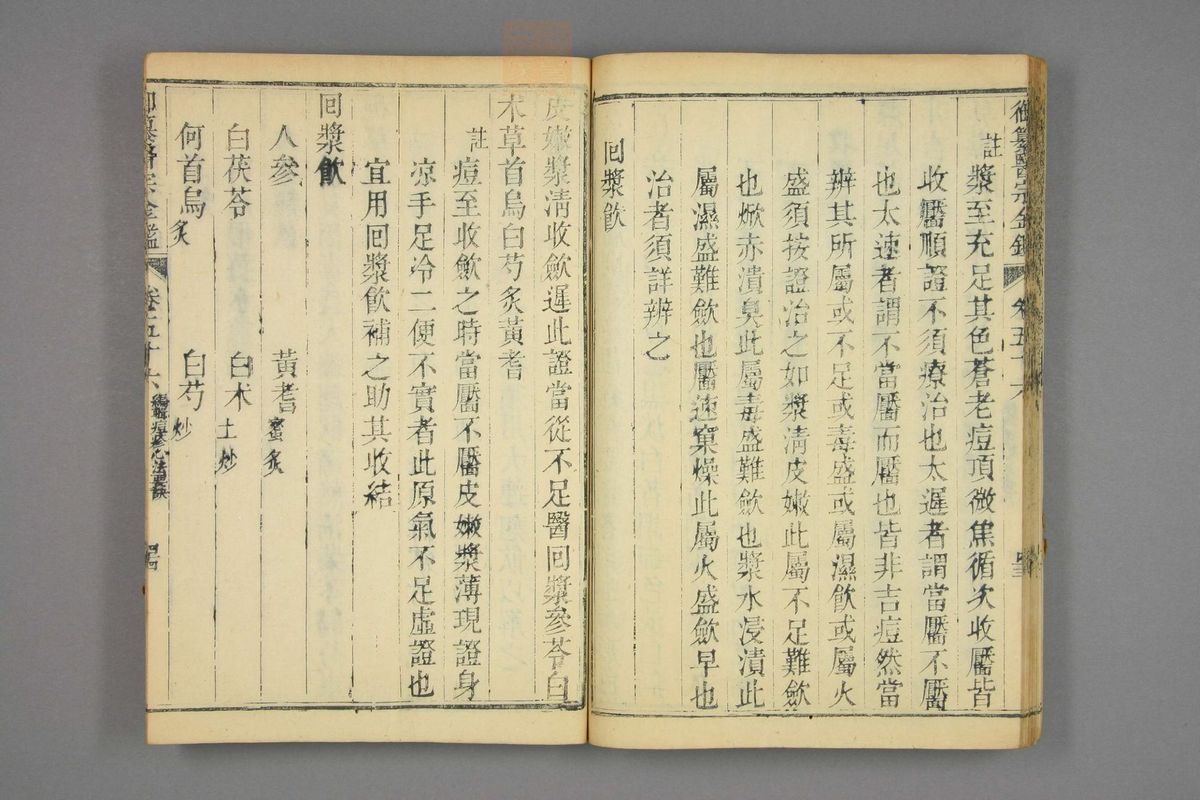 御纂醫宗金鑑 卷五十六 四三
註漿至充足其色蒼老痘頂微焦循次收靨皆
收靨順證不須療治也太遲者謂當靨不靨
也太速者謂不當靨而靨也皆非吉痘然當
辨其所屬或不足或毒盛或屬濕飲或屬火
盛須按證治之如漿清皮嫩此屬不足難斂
也焮赤潰臭此屬毒盛難斂也漿水浸漬此
屬濕盛難斂也靨速窠燥此屬火盛斂早也
治者須詳辨之
回漿飲
皮嫩漿清收斂遲此證當從不足醫回漿參苓白
朮草首烏白芍炙黃耆
註痘至收斂之時當靨不靨皮嫩漿薄現證身
涼手足冷二便不實者此原氣不足虛證也
宜用回漿飲補之助其收結
回漿飲
人參 黃耆蜜炙
白茯苓 白朮土炒
何首烏炙 白芍炒
御纂醫宗金鑑 卷五十六 編輯痘疹心法要訣 四四